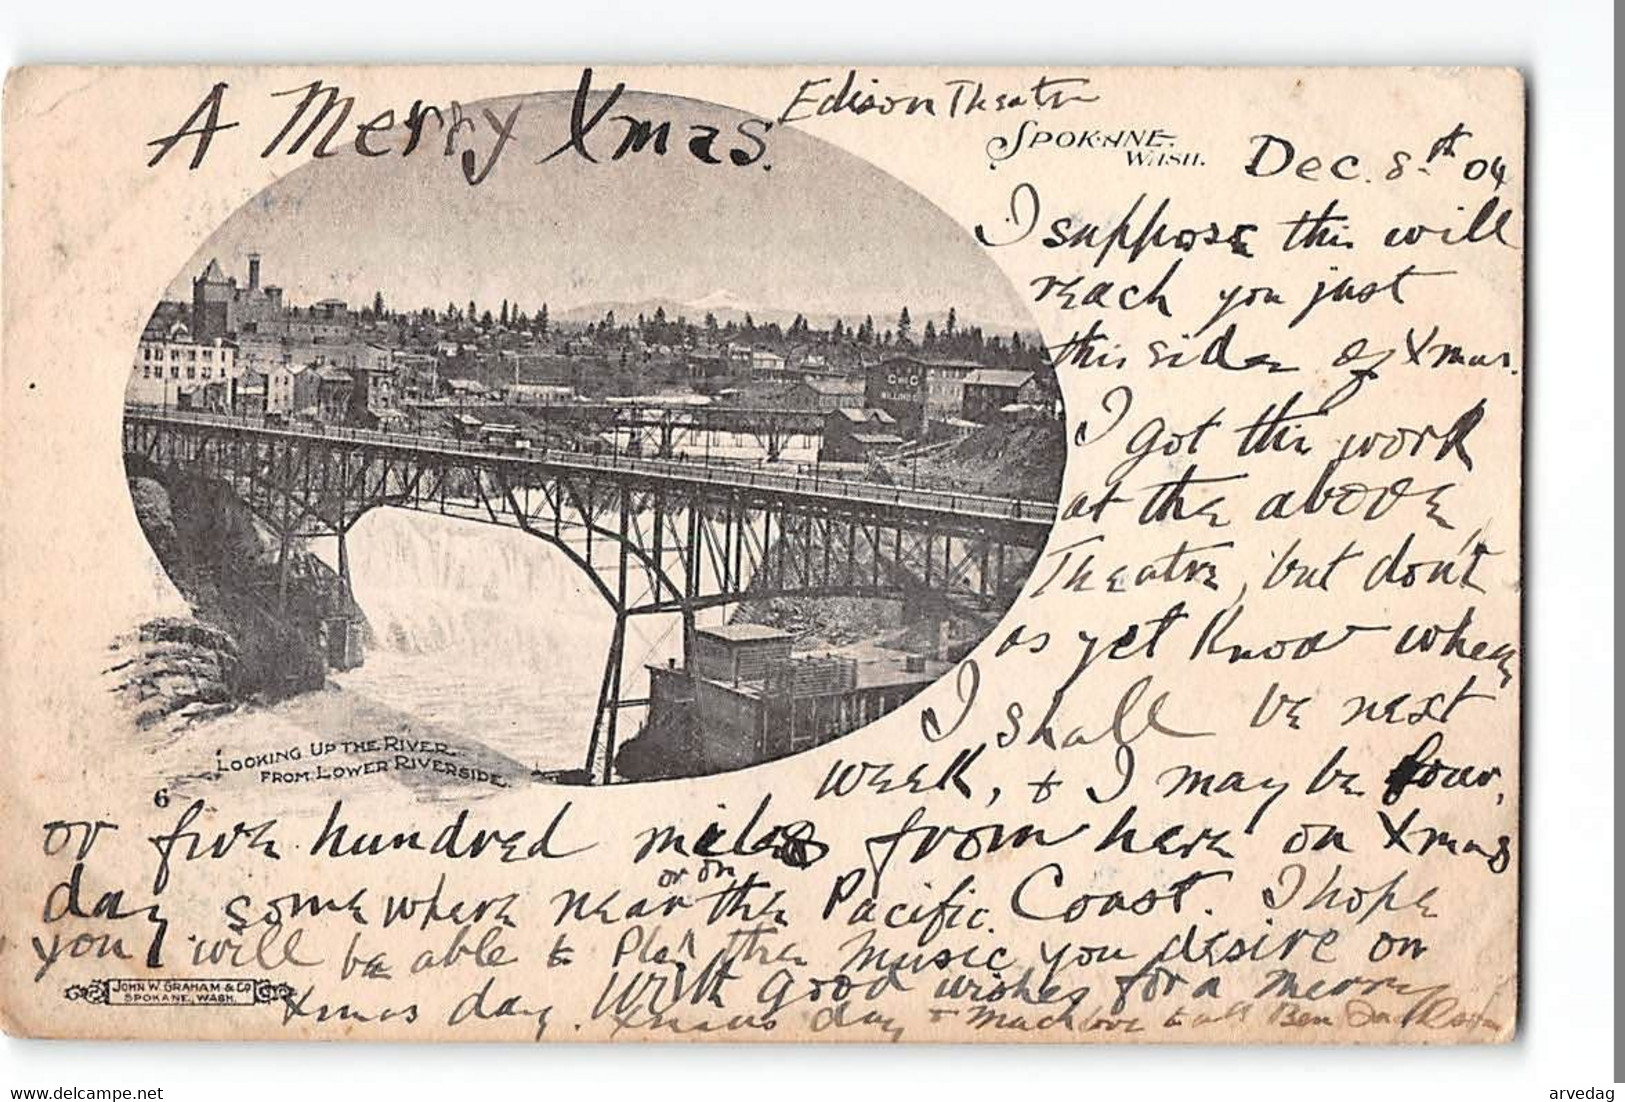 A Merry Xmas.
Edison Theatre
SPOKANE.
WASH.
Dec. 8th 04
I suppose this will
reach you just
this side of Xmas.
I got thr work
at the above
Theatre, but don't
as yet know where
I shall be next
week, & I may be four,
or five hundred miles from here on Xmas
day somewhere near or on the Pacific Coast. I hope
you will be able to Play the music you desire on
Xmas day. With good wishes for a merry
Xmas day & Much love to all Ben Jackson
C and C
MILLING C
LOOKING UP THE RIVER
FROM LOWER RIVERSIDE.
6
JOHN W. GRAHAM & CO
SPOKANE, WASH.
https://www.delcampe.net
arvedag